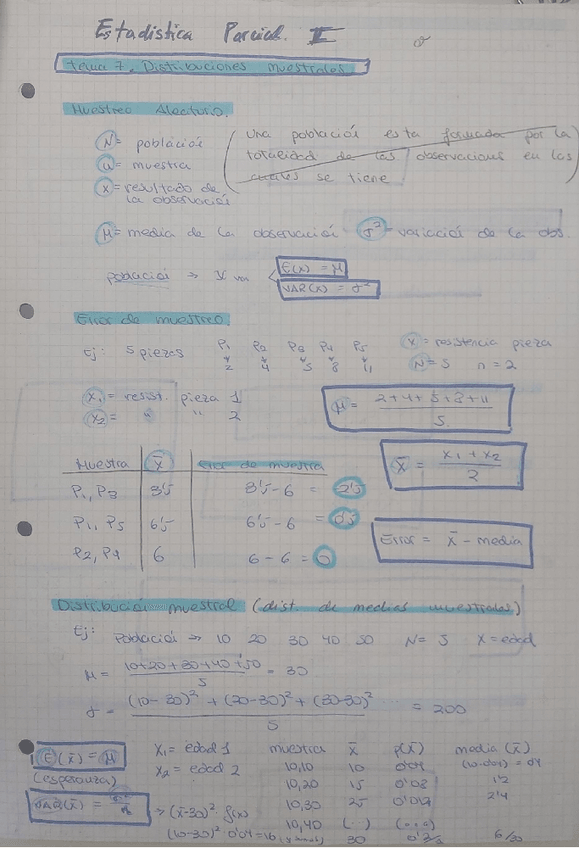 Estadistica Parcial. II
Tema 7. Distribuciones muestrales
Muestreo Aleatorio.
N = población
n = muestra
x = resultado de la observación
(Una población esta formada por la totalidad de las observaciones en las cuales se tiene)
μ = media de la observación σ² = variación de la obs.
población → X va E(x) = μ
VAR(x) = σ²
Error de muestreo.
Ej: 5 piezas P1 P2 P3 P4 P5
2 4 5 8 11
X = resistencia pieza
N = 5 n = 2
X1 = resist. pieza 1
X2 = " " 2
μ = 2+4+5+8+11 / 5
Muestra x̄ Error de muestra
x̄ = x1 + x2 / 2
P1, P3 3'5 3'5 - 6 = 2'5
P1, P5 6'5 6'5 - 6 = 0'5
P2, P4 6 6 - 6 = 0
Error = x̄ - media
Distribución muestral (dist. de medias muestrales)
Ej: Población → 10 20 30 40 50 N = 5 X = edad
μ = 10+20+30+40+50 / 5 = 30
σ = (10-30)² + (20-30)² + (30-30)² / 5 = 200
E(x̄) = μ
(esperanza)
VAR(x̄) =
X1 = edad 1
X2 = edad 2
→ (x̄-30)² · f(x)
(10-30)² 0'04 = 16
muestra x̄ p(x̄) media (x̄)
10,10 10 0'04 (10·0'04) = 0'4
10,20 15 0'08 1'2
10,30 25 2'4
10,40 (..) (...)
30 6/30